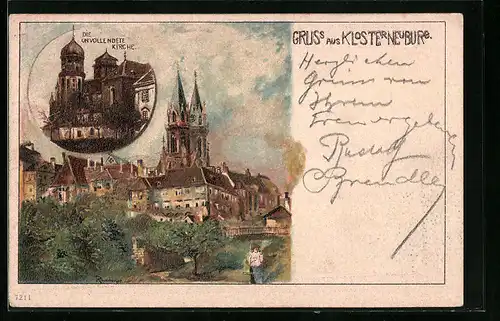 DIE
UNVOLLENDETE
KIRCHE.
GRUSS AUS KLOSTERNEUBURG.
Herzlichen
Gruss von
Ihrem
Rudolf
7211